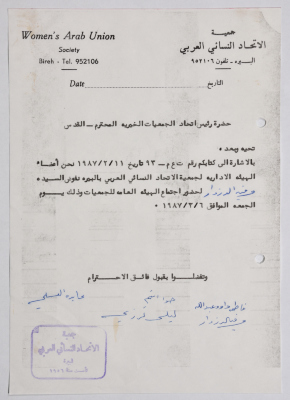 Women's Arab Union
Society
Bireh - Tel. 952106
جمعية
الاتحاد النسائي العربي
البيره - تلفون ٩٥٢١٠٦
Date
التاريخ
حضرة رئيس اتحاد الجمعيات الخيريه المحترم - القدس
تحيه وبعد ،
بالاشارة الى كتابكم رقم ت ع م - ٩٣ تاريخ ١٩٨٧/٢/١١ نحن أعضاء
الهيئه الاداريه لجمعية الاتحاد النسائي العربي بالبيره نفوض السيده
لحضور اجتماع الهيئه العامه للجمعيات وذلك يوم
الجمعه الموافق ١٩٨٧/٣/٦ ٠
وتفضلوا بقبول فائق الاحترام
جمعية
الاتحاد النسائي العربي